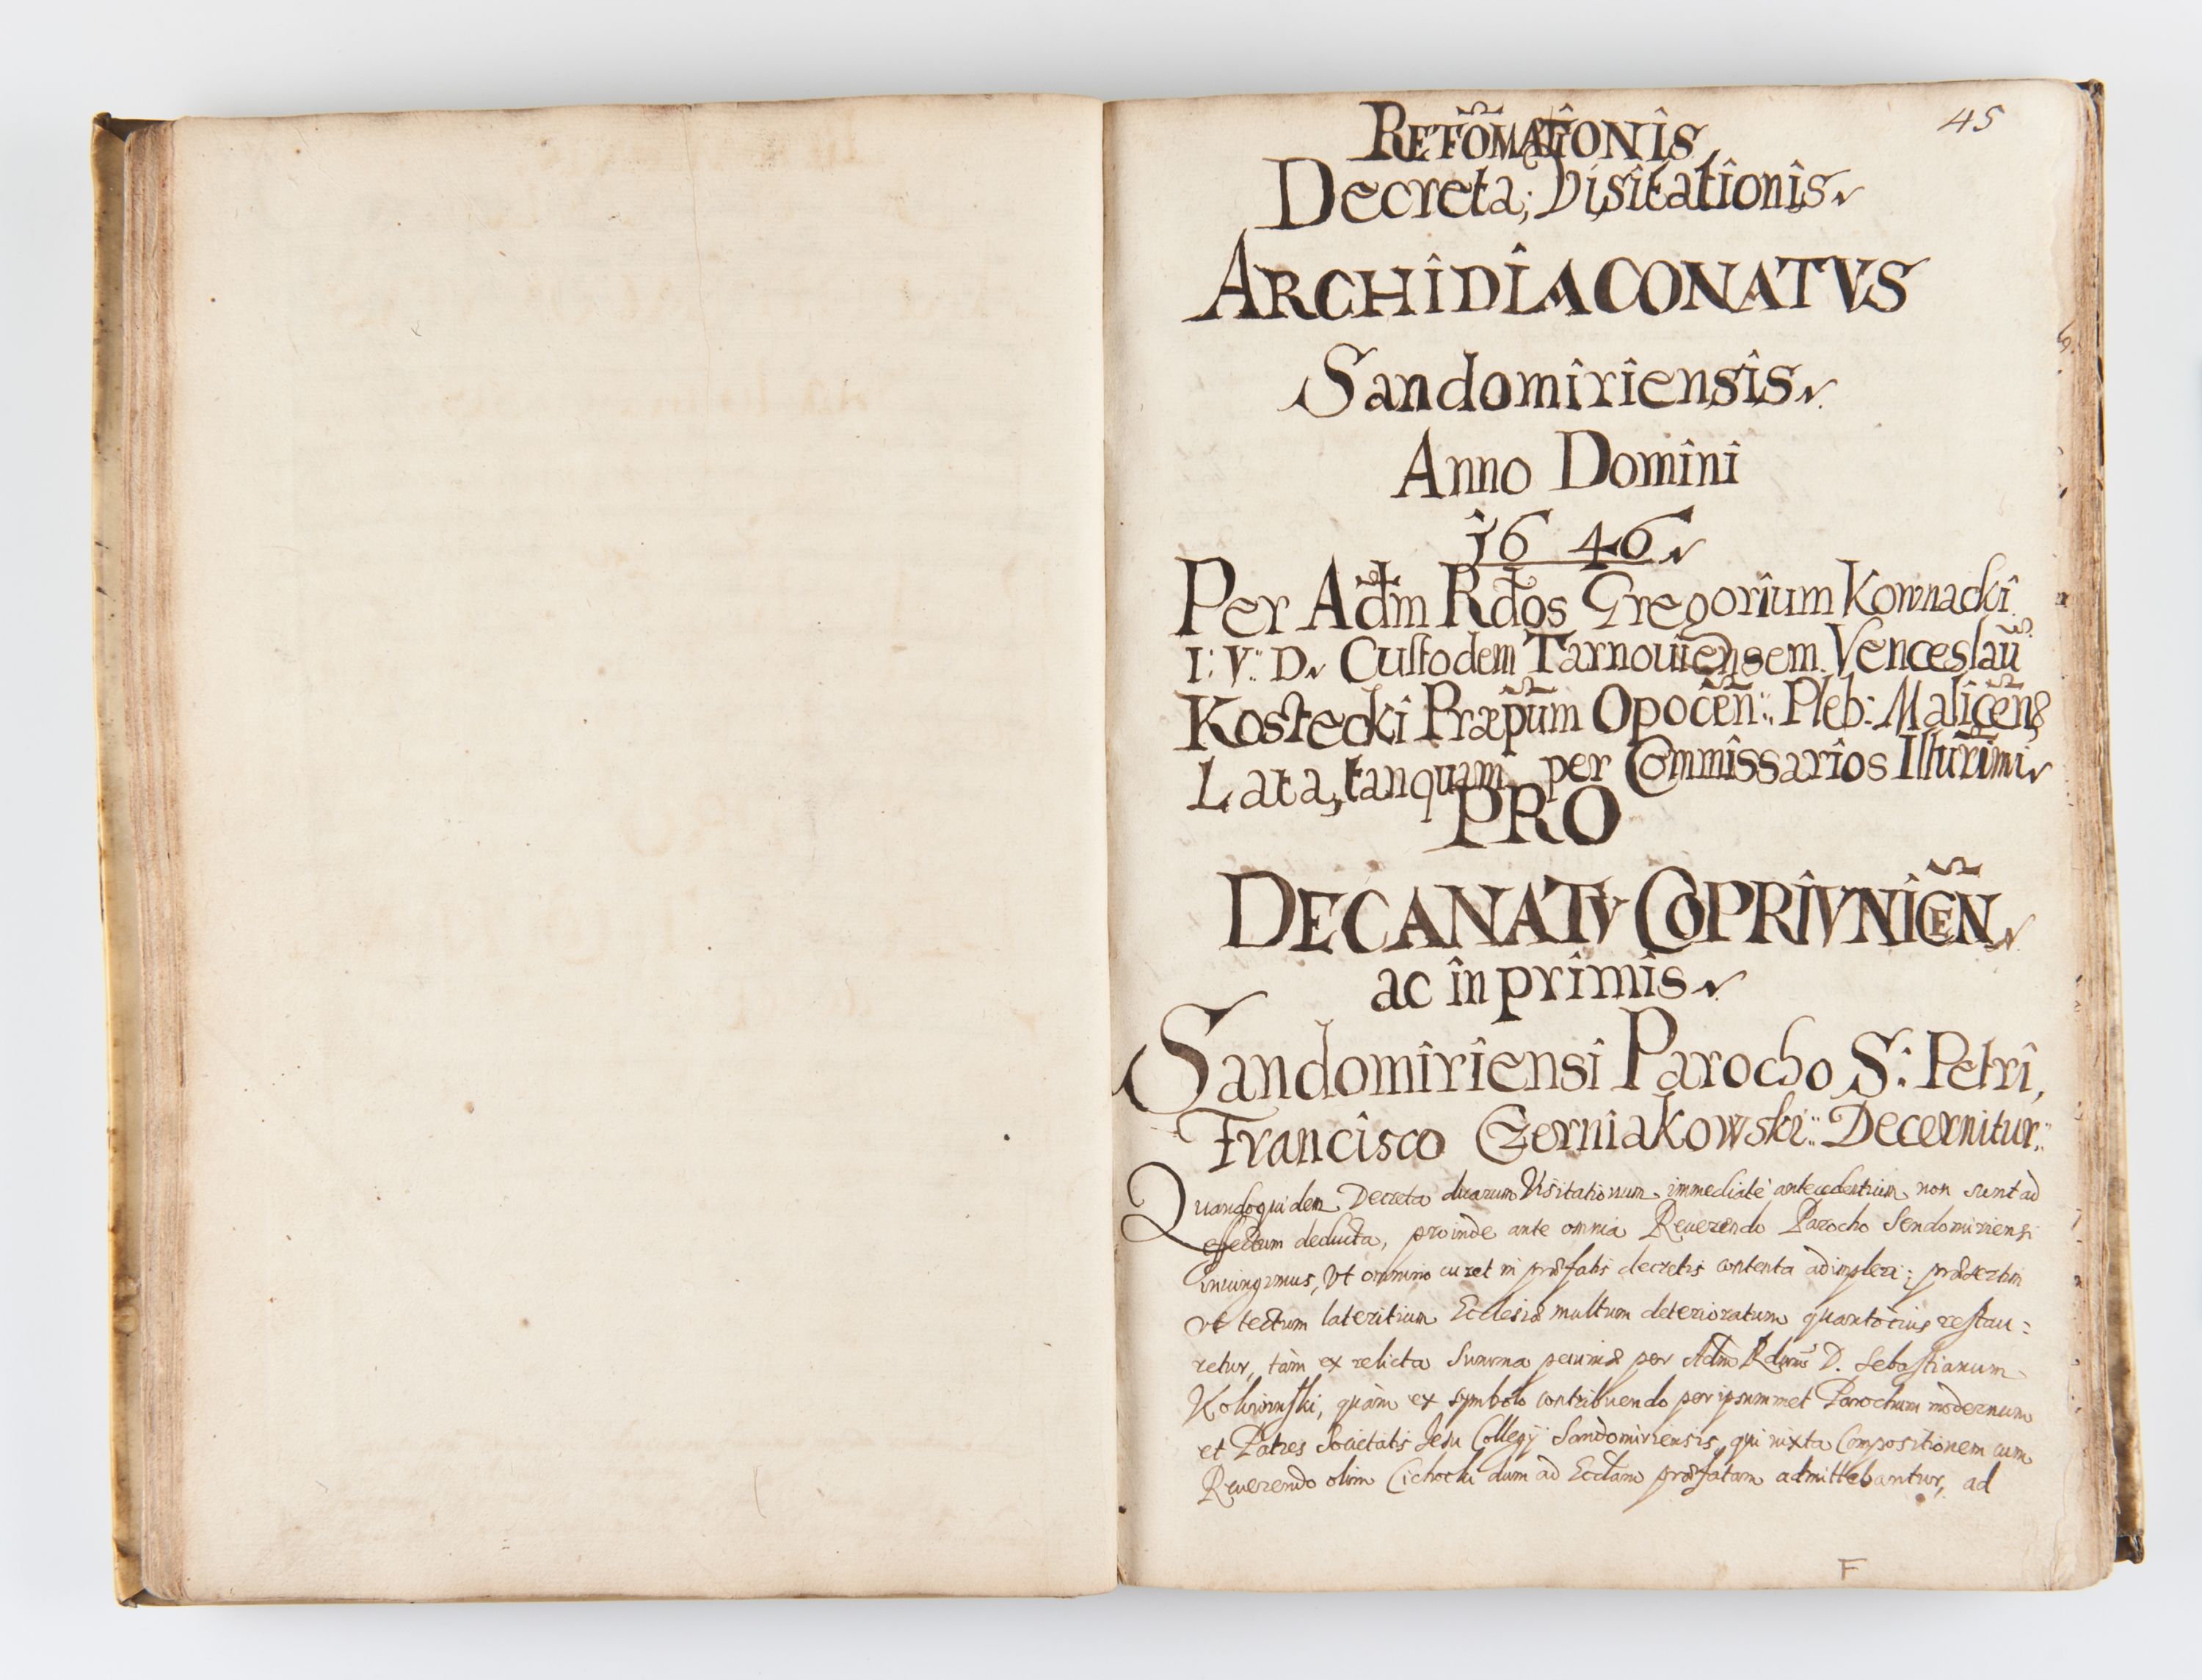 45
REFOMATIONIS
Decreta, Visitationis
ARCHIDIACONATVS
Sandomiriensis
Anno Domini
1646
Per Adm Rdos Gregorium Kownacki
I: V: D. Custodem Tarnouiensem. Venceslaũ
Kostecki Præp̃um Opoceñ: Pleb: Maliceñs
Lata, tanquam per Commissarios Illurimi
PRO
DECANATV COPRIVNICEÑ
ac in primis
Sandomiriensi Parocho S: Petri,
Francisco Czerniakowski: Decernitur:
Quandoquidem Decreta duarum Visitationum immediatè antecedentium non sunt ad
effectum deducta, proinde ante omnia Reuerendo Parocho Sendomiriensi
iniungimus, Vt omnino curet in præfatis decretis contenta adimpleri; præsertim
vt tectum lateritium Ecclesiæ multum deterioratum quantocius restau:
retur, tàm ex relicta Summa pecuniæ per Adm Rdum D. Sebastianum
quàm ex symbolo contribuendo per ipsummet Parochum modernum
et Patres Societatis Jesu Collegij Sandomiriensis, qui iuxta Compositionem cum
Reuerendo olim Cichocki dum ad Eccl̃am præfatam admittebantur, ad
F